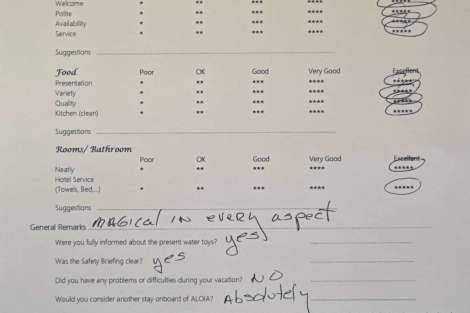 Welcome * ** *** **** *****
Polite * ** *** **** *****
Availability * ** *** **** *****
Service * ** *** **** *****
Suggestions
Food Poor OK Good Very Good Excellent
Presentation * ** *** **** *****
Variety * ** *** **** *****
Quality * ** *** **** *****
Kitchen (clean) * ** *** **** *****
Suggestions
Rooms/ Bathroom
Poor OK Good Very Good Excellent
Neatly * ** *** **** *****
Hotel Service
(Towels, Bed,...) * ** *** **** *****
Suggestions
General Remarks MAGICAL IN every aspect
Were you fully informed about the present water toys? yes
Was the Safety Briefing clear? yes
Did you have any problems or difficulties during your vacation? NO
Would you consider another stay onboard of ALOIA? Absolutely